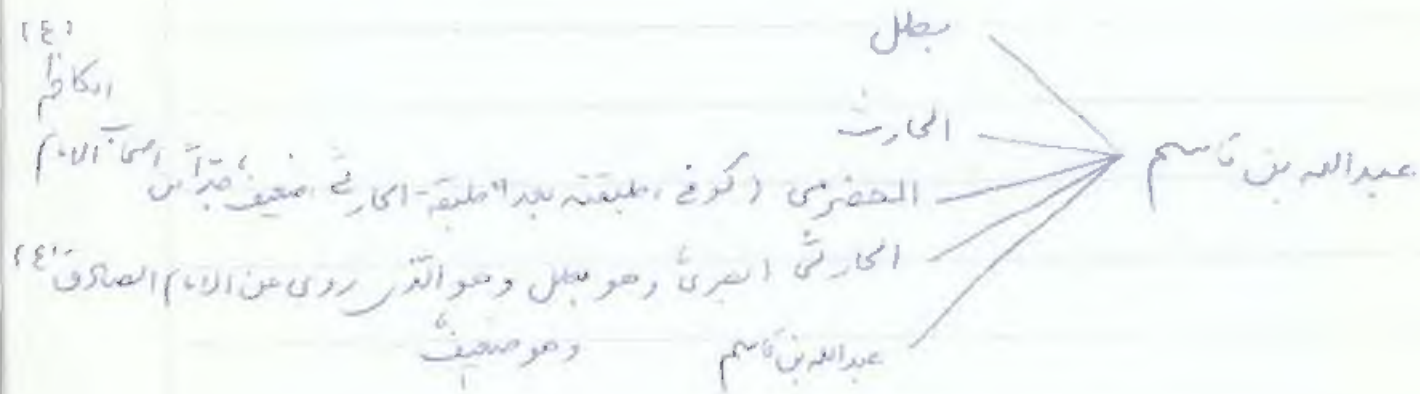 عبدالله بن قاسم
بطل
الحارث
الحضرمي (كوفي، طبقته بعد طبقة الحارثي، ضعيف جداً من اصحاب الامام الكاظم (ع)
الحارثي البصري وهو بطل وهو الذي روى عن الامام الصادق (ع)
وهو ضعيف
عبدالله بن قاسم